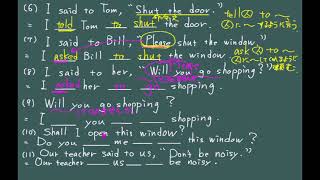 (6) I said to Tom, "Shut the door."
= I told Tom to shut the door.
tell 人 to ~
(7) I said to Bill, "Please shut the window."
= I asked Bill to shut the window.
ask 人 to ~
(8) I said to her, "Will you go shopping?"
= I asked her shopping.
(9) Will you go shopping?
= I you shopping.
(10) Shall I open this window?
= Do you me this window?
(11) Our teacher said to us, "Don't be noisy."
= Our teacher us be noisy.